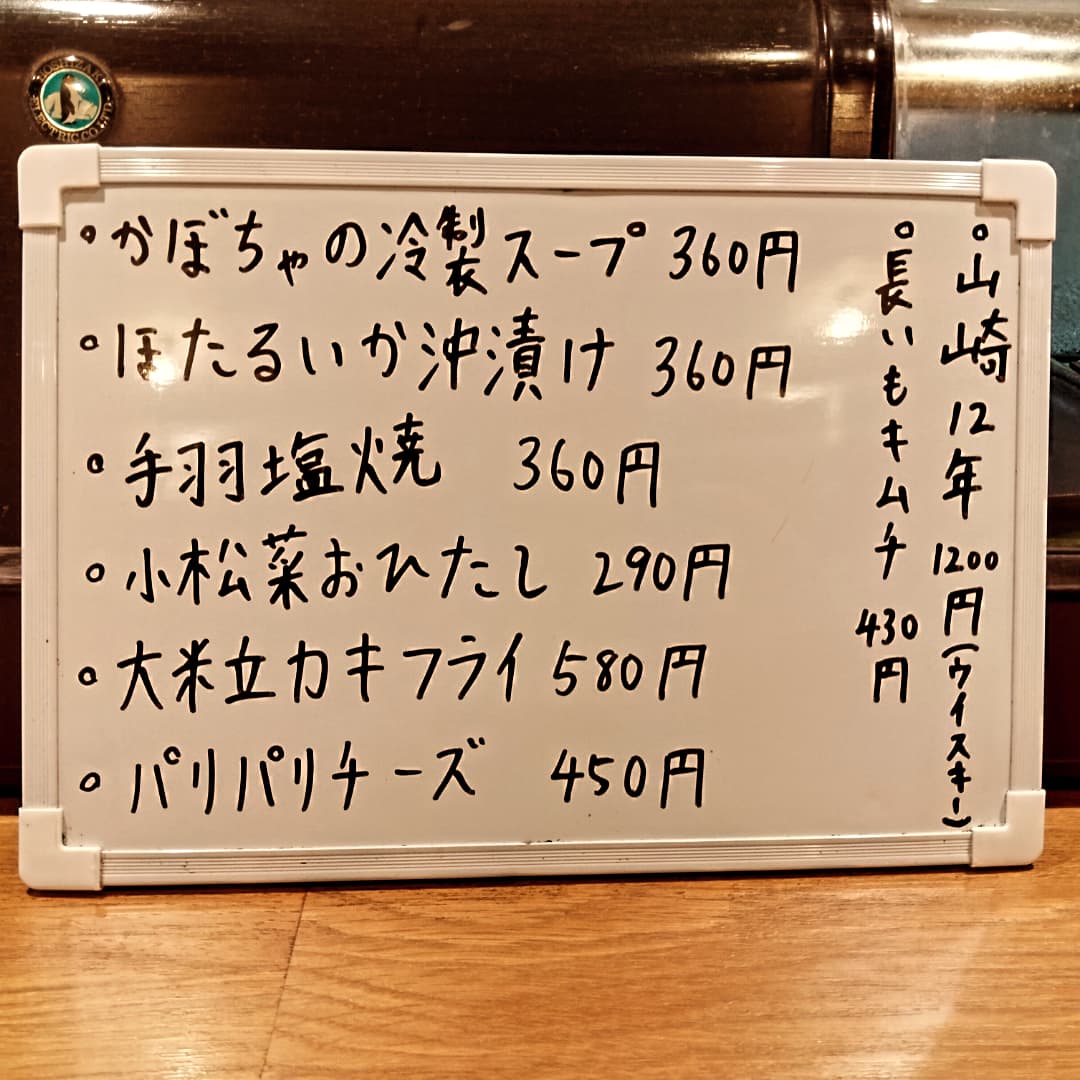 HOSHIZAKI
ELECTRIC CO., LTD.
。かぼちゃの冷製スープ 360円
。ほたるいか沖漬け 360円
。手羽塩焼 360円
。小松菜おひたし 290円
。大粒カキフライ 580円
。パリパリチーズ 450円
。山崎12年 1200円(ウイスキー)
。長いもキムチ 430円